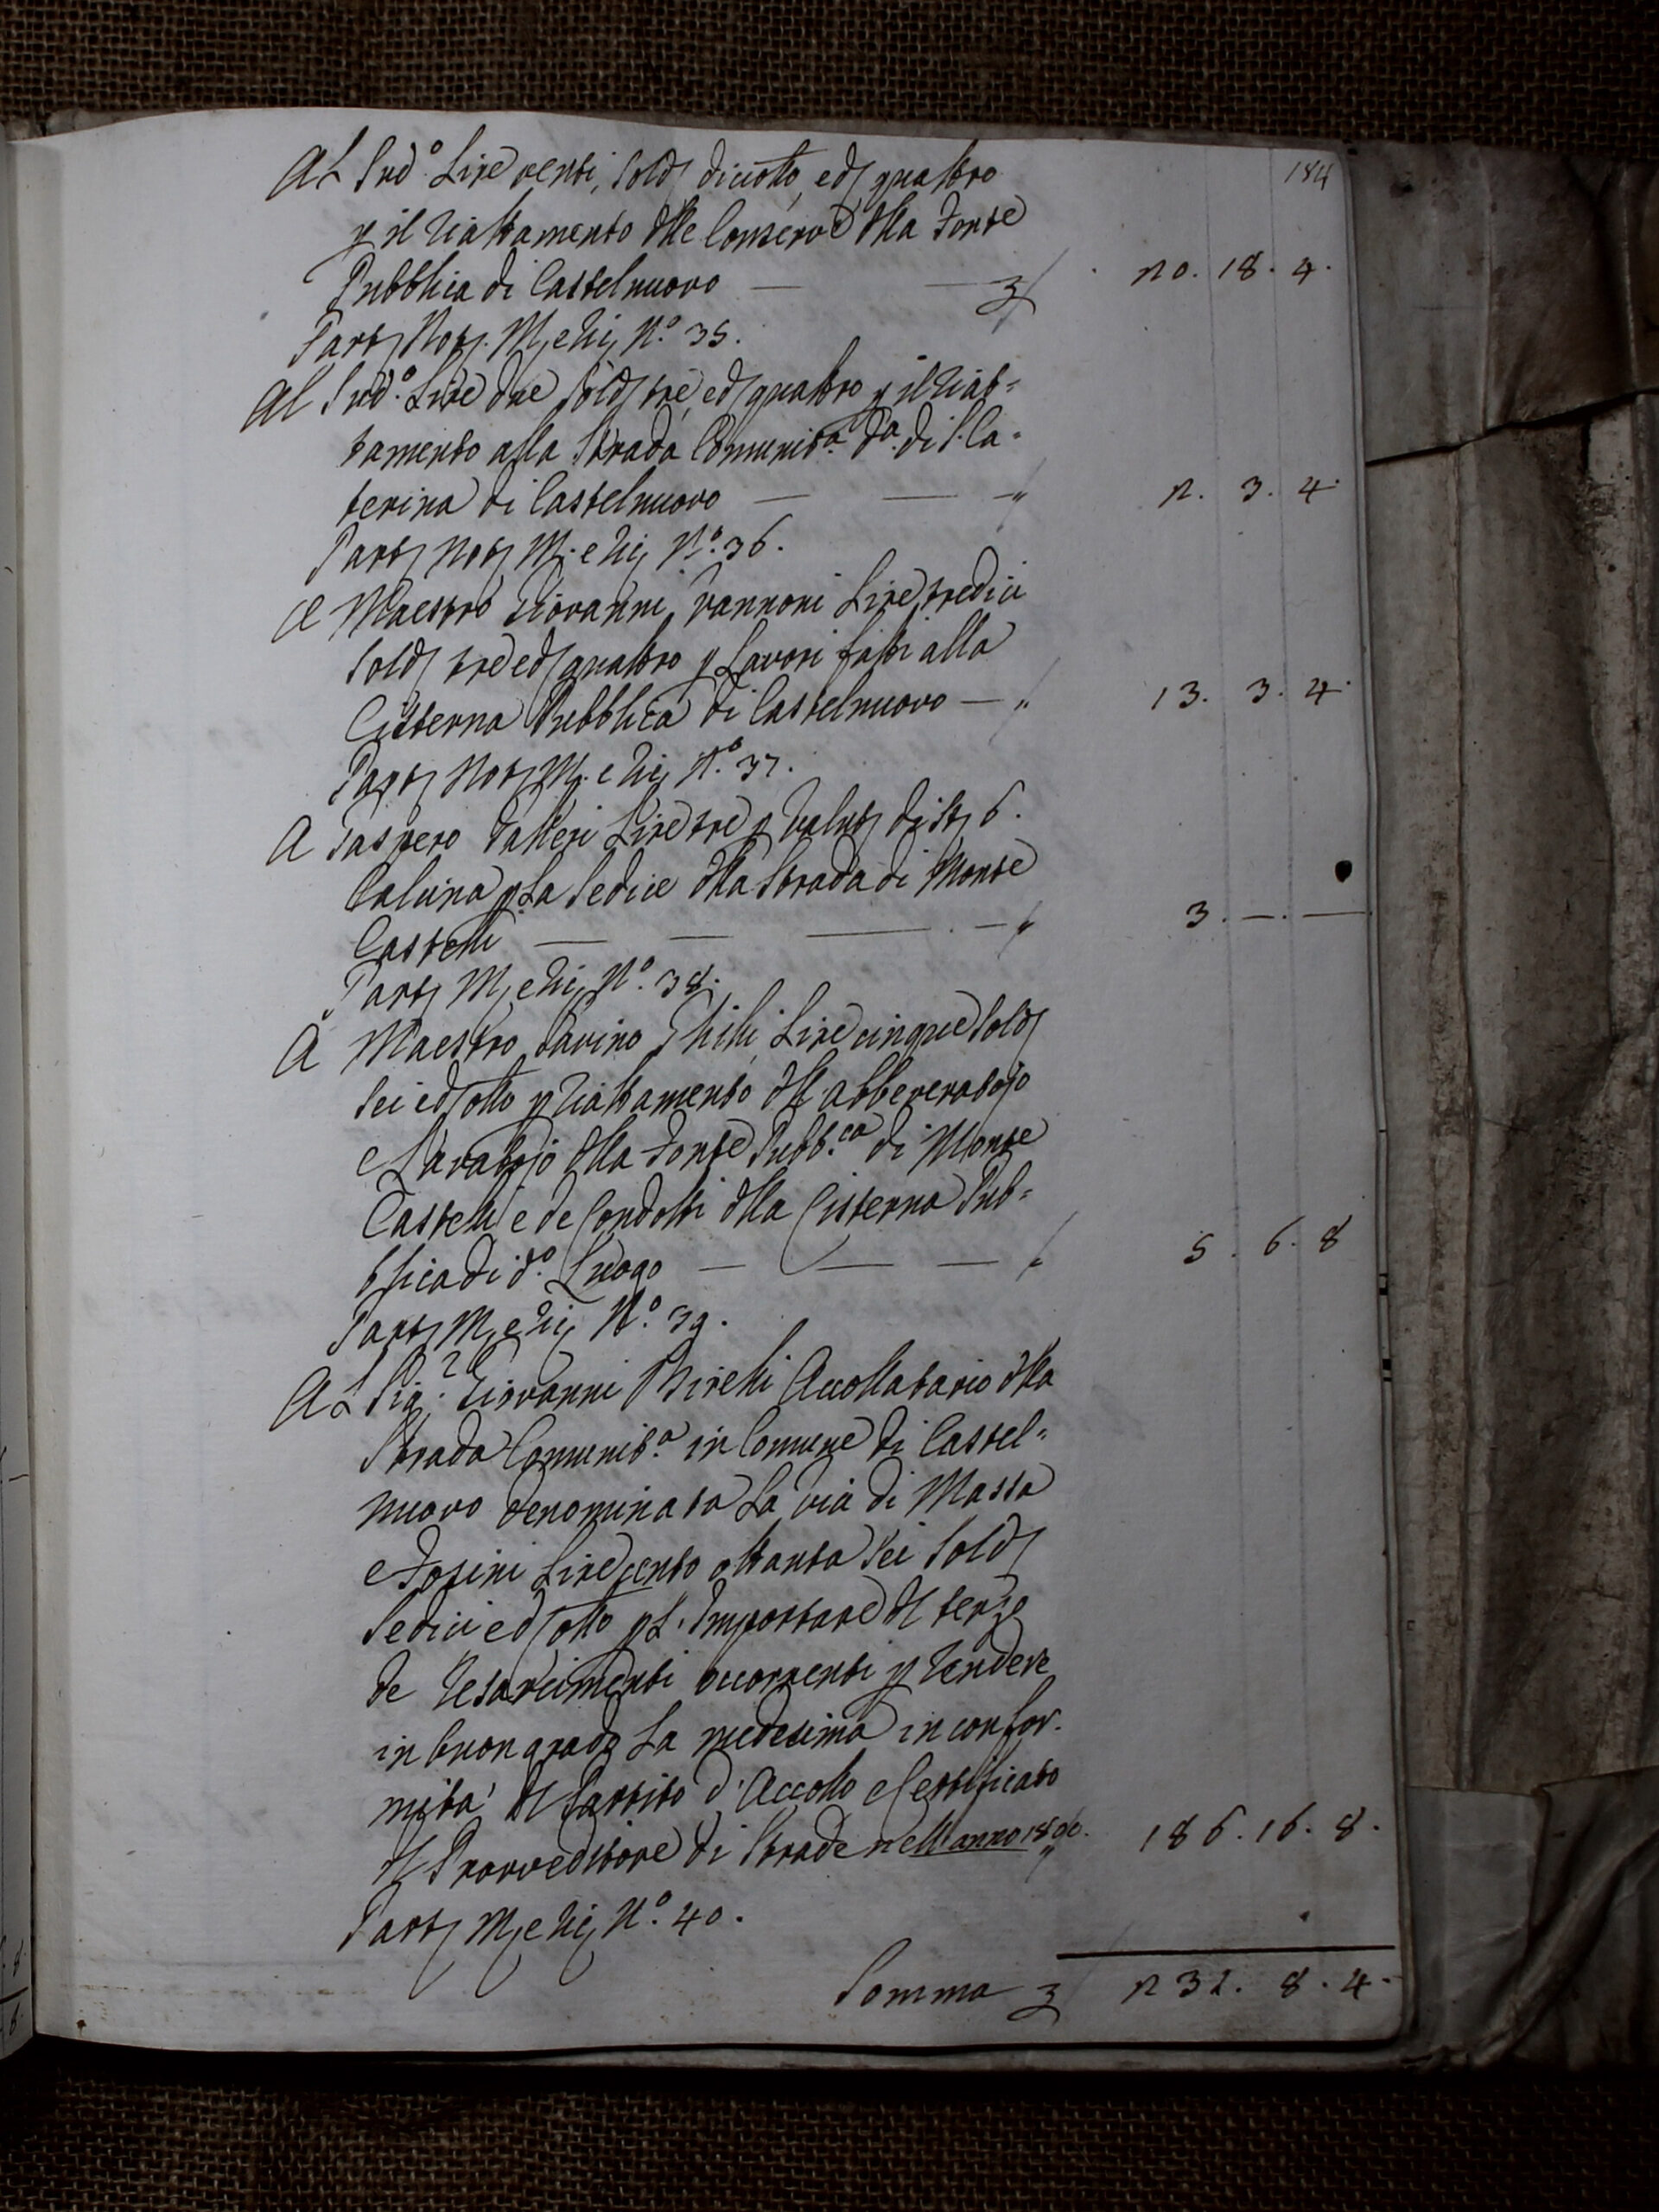 184
Al Sud.o Lire venti, Sold diciotto, e d quattro
p il Riattamento dlle Conserve dlla Fonte
Pubblica di Castelnuovo — £ 20. 18. 4.
Part Not. M, e Ri, N.o 35.
Al Sud.o Lire due Sold tre, e d quattro p il Riat=
tamento alla Strada Comunit.a d.a di S. Ca=
terina di Castelnuovo — — — " 2. 3. 4.
Part Not M. e Ri, N.o 36.
A Maestro Giovanni Vannoni Lire tredici
Sold tre e d quattro p Lavori fatti alla
Cisterna Pubblica di Castelnuovo — " 13. 3. 4.
Part Not M. e Ri, N.o 37.
A Gaspero Lire tre p Valut di St 6.
Calcina p La Sedice dlla Strada di Monte
Castelli — — — — " 3. —. —
Part M, e Ri, N.o 38.
A Maestro Ghilli Lire cinque Sold
Sei e d otto p Riattamento dll abbeveratojo
e Lavatojo dlla Fonte Pubb.ca di Monte
Castelli e de Condotti dlla Cisterna Pub=
blica di d.o Luogo — — — " 5. 6. 8
Part M, e Ri, N.o 39.
Al Sig.re Giovanni Birelli Accollatario dlla
Strada Comunit.a in Comune di Castel=
nuovo denominata La via di Massa
e Fosini Lire cento ottanta Sei Sold
Sedici e d otto p L'Importare dl terzo
de Resarcimenti occorrenti p Rendere
in buon grado La medesima in confor=
mità dl Partito d'Accollo e Certificato
dl Provveditore di Strade nell'anno " 186. 16. 8.
Part M, e Ri, N.o 40.
Somma £ 231. 8. 4.